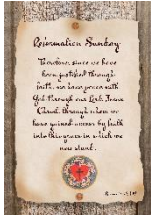 Reformation Sunday
Therefore, since we have
been justified through
faith, we have peace with
God through our Lord Jesus
Christ, through whom we
have gained access by faith
into this grace in which we
now stand.